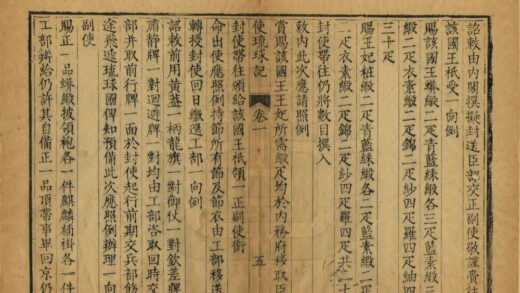 詔敕由內閣撰擬封送臣部交正副使敬謹賫往
該國王祗受一向例
賜該國王蟒緞二疋青藍綵緞各三疋藍素緞
緞二疋衣素緞二疋錦二疋紗四疋羅四疋紬四
三十疋
賜王妃粧緞二疋青藍綵緞各二疋藍素緞
二疋衣素緞二疋錦二疋紗四疋羅四疋共二十
封使帶往仍將數目撰入
敕內此次應請照例
使琉球記 卷一 五
賞賜該國王王妃所需緞疋均於內務府移取臣
封使帶往頒給該國王祗領一正副使銜
命出使應照例持節所有節及節衣由工部移送
轉授封使回日繳還工部一向例
詔敕前用黃蓋一柄龍旗一對御仗一對欽差牌
肅靜牌一對迴避牌一對均由工部咨取回時交
部并取前行牌一面於封使起行前期交兵部飭
途飛遞琉球國俾知預備此次應照例辦理一向
副使
賜正一品蟒緞披領袍各一件麒麟補褂各一件
工部辦給仍許其自備正一品頂帶事畢回京仍